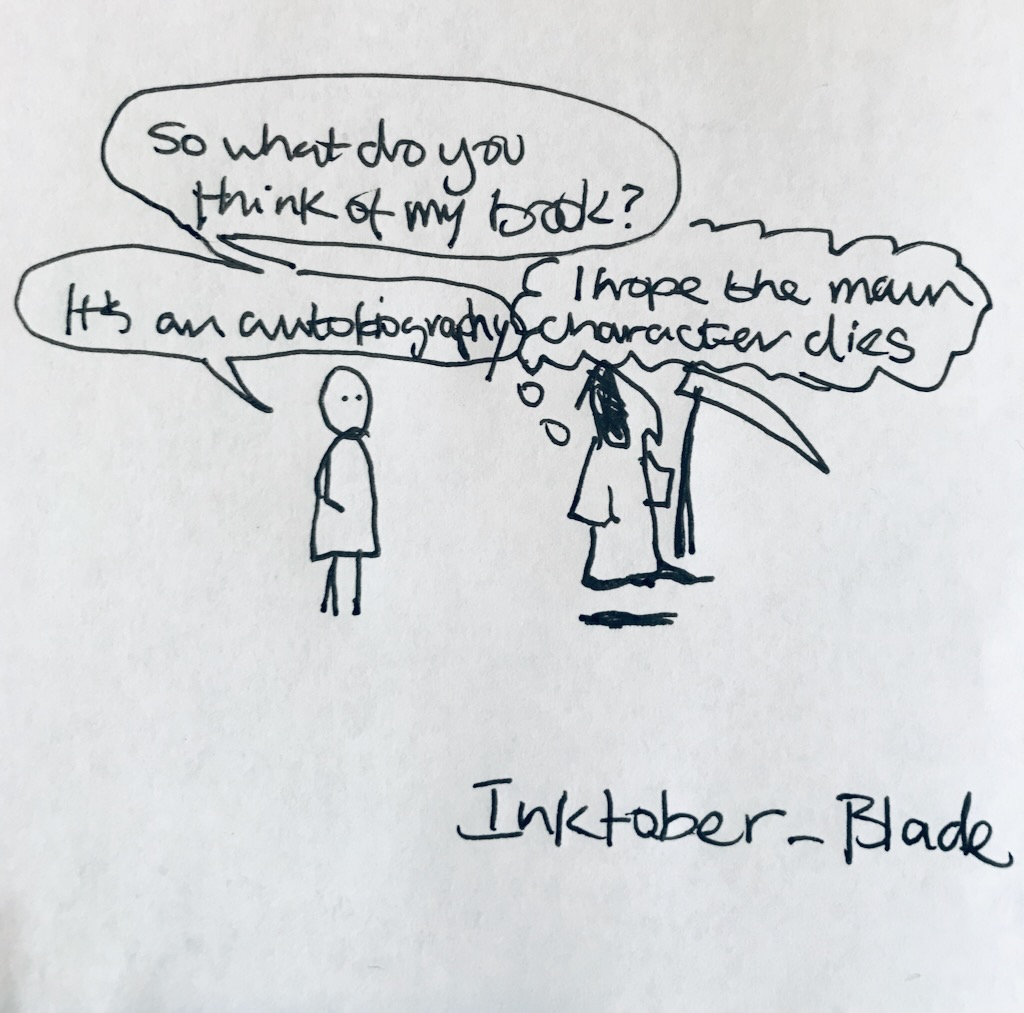 So what do you
think of my book?
It's an autobiography
I hope the main
character dies
Inktober_Blade